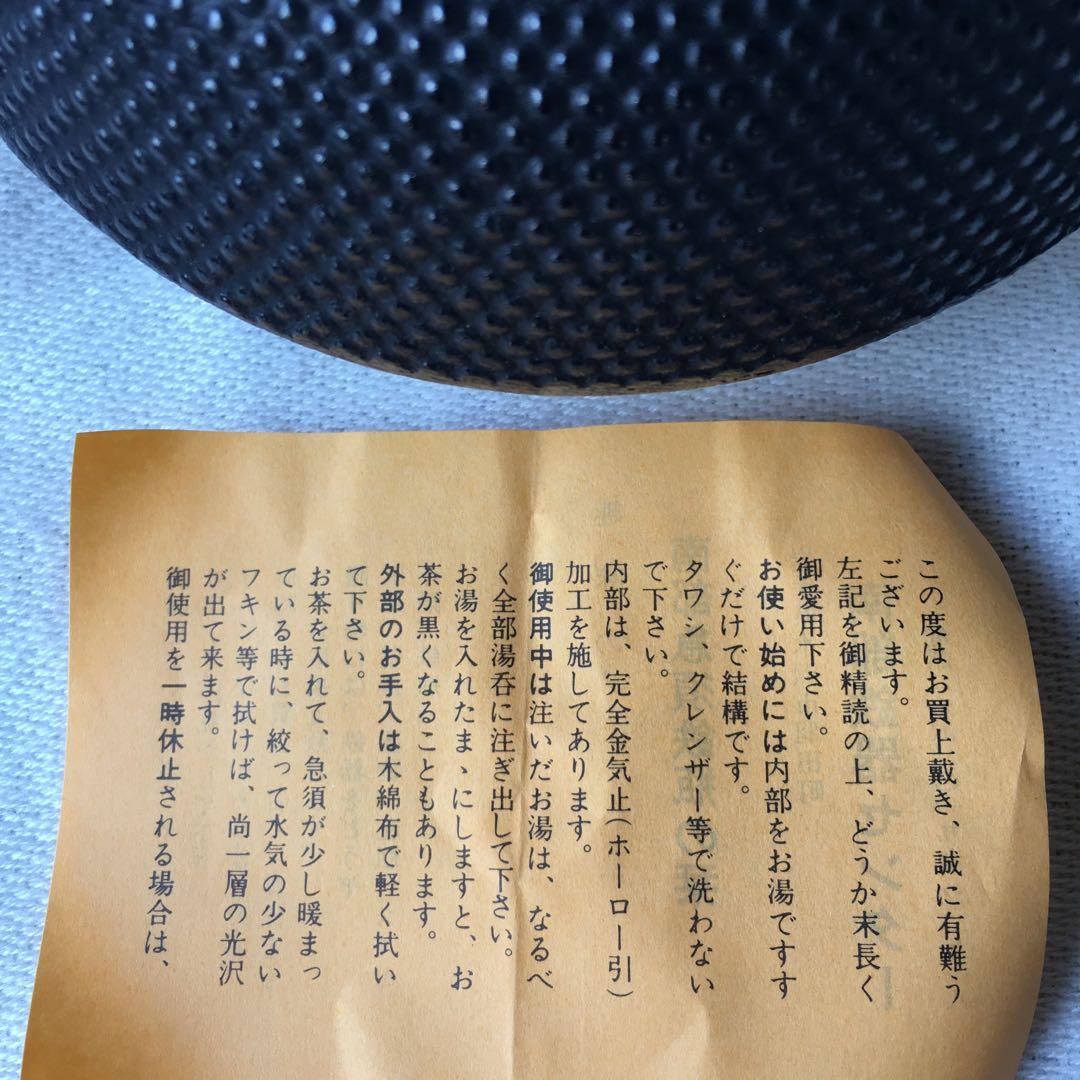 この度はお買上戴き、誠に有難う
ございます。
左記を御精読の上、どうか末長く
御愛用下さい。
お使い始めには内部をお湯ですす
ぐだけで結構です。
タワシ、クレンザー等で洗わない
で下さい。
内部は、完全金気止(ホーロー引)
加工を施してあります。
御使用中は注いだお湯は、なるべ
く全部湯呑に注ぎ出して下さい。
お湯を入れたまゝにしますと、お
茶が黒くなることもあります。
外部のお手入は木綿布で軽く拭い
て下さい。
お茶を入れて、急須が少し暖まっ
ている時に、絞って水気の少ない
フキン等で拭けば、尚一層の光沢
が出て来ます。
御使用を一時休止される場合は、